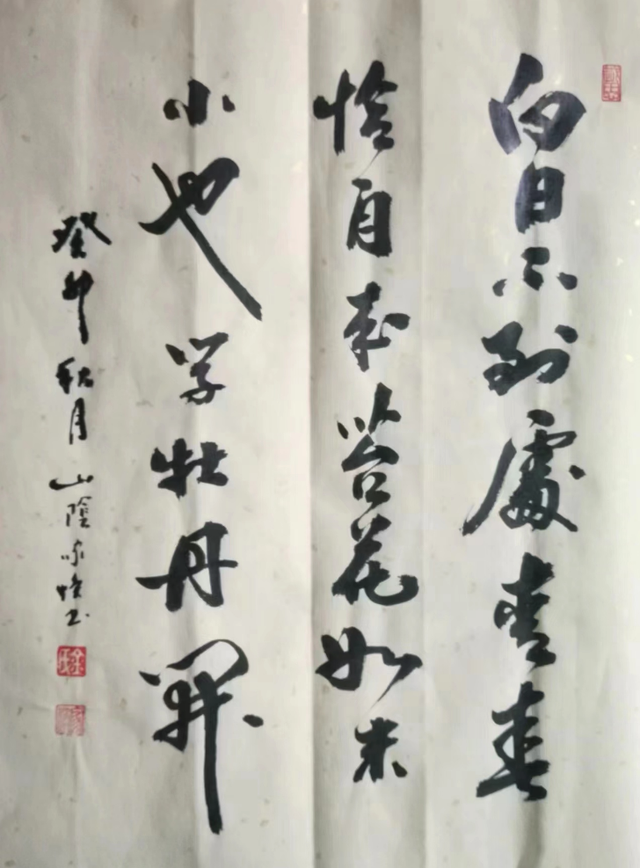 白日不到處青春
恰自来苔花如米
小也学牡丹開
癸卯秋月山陰家书